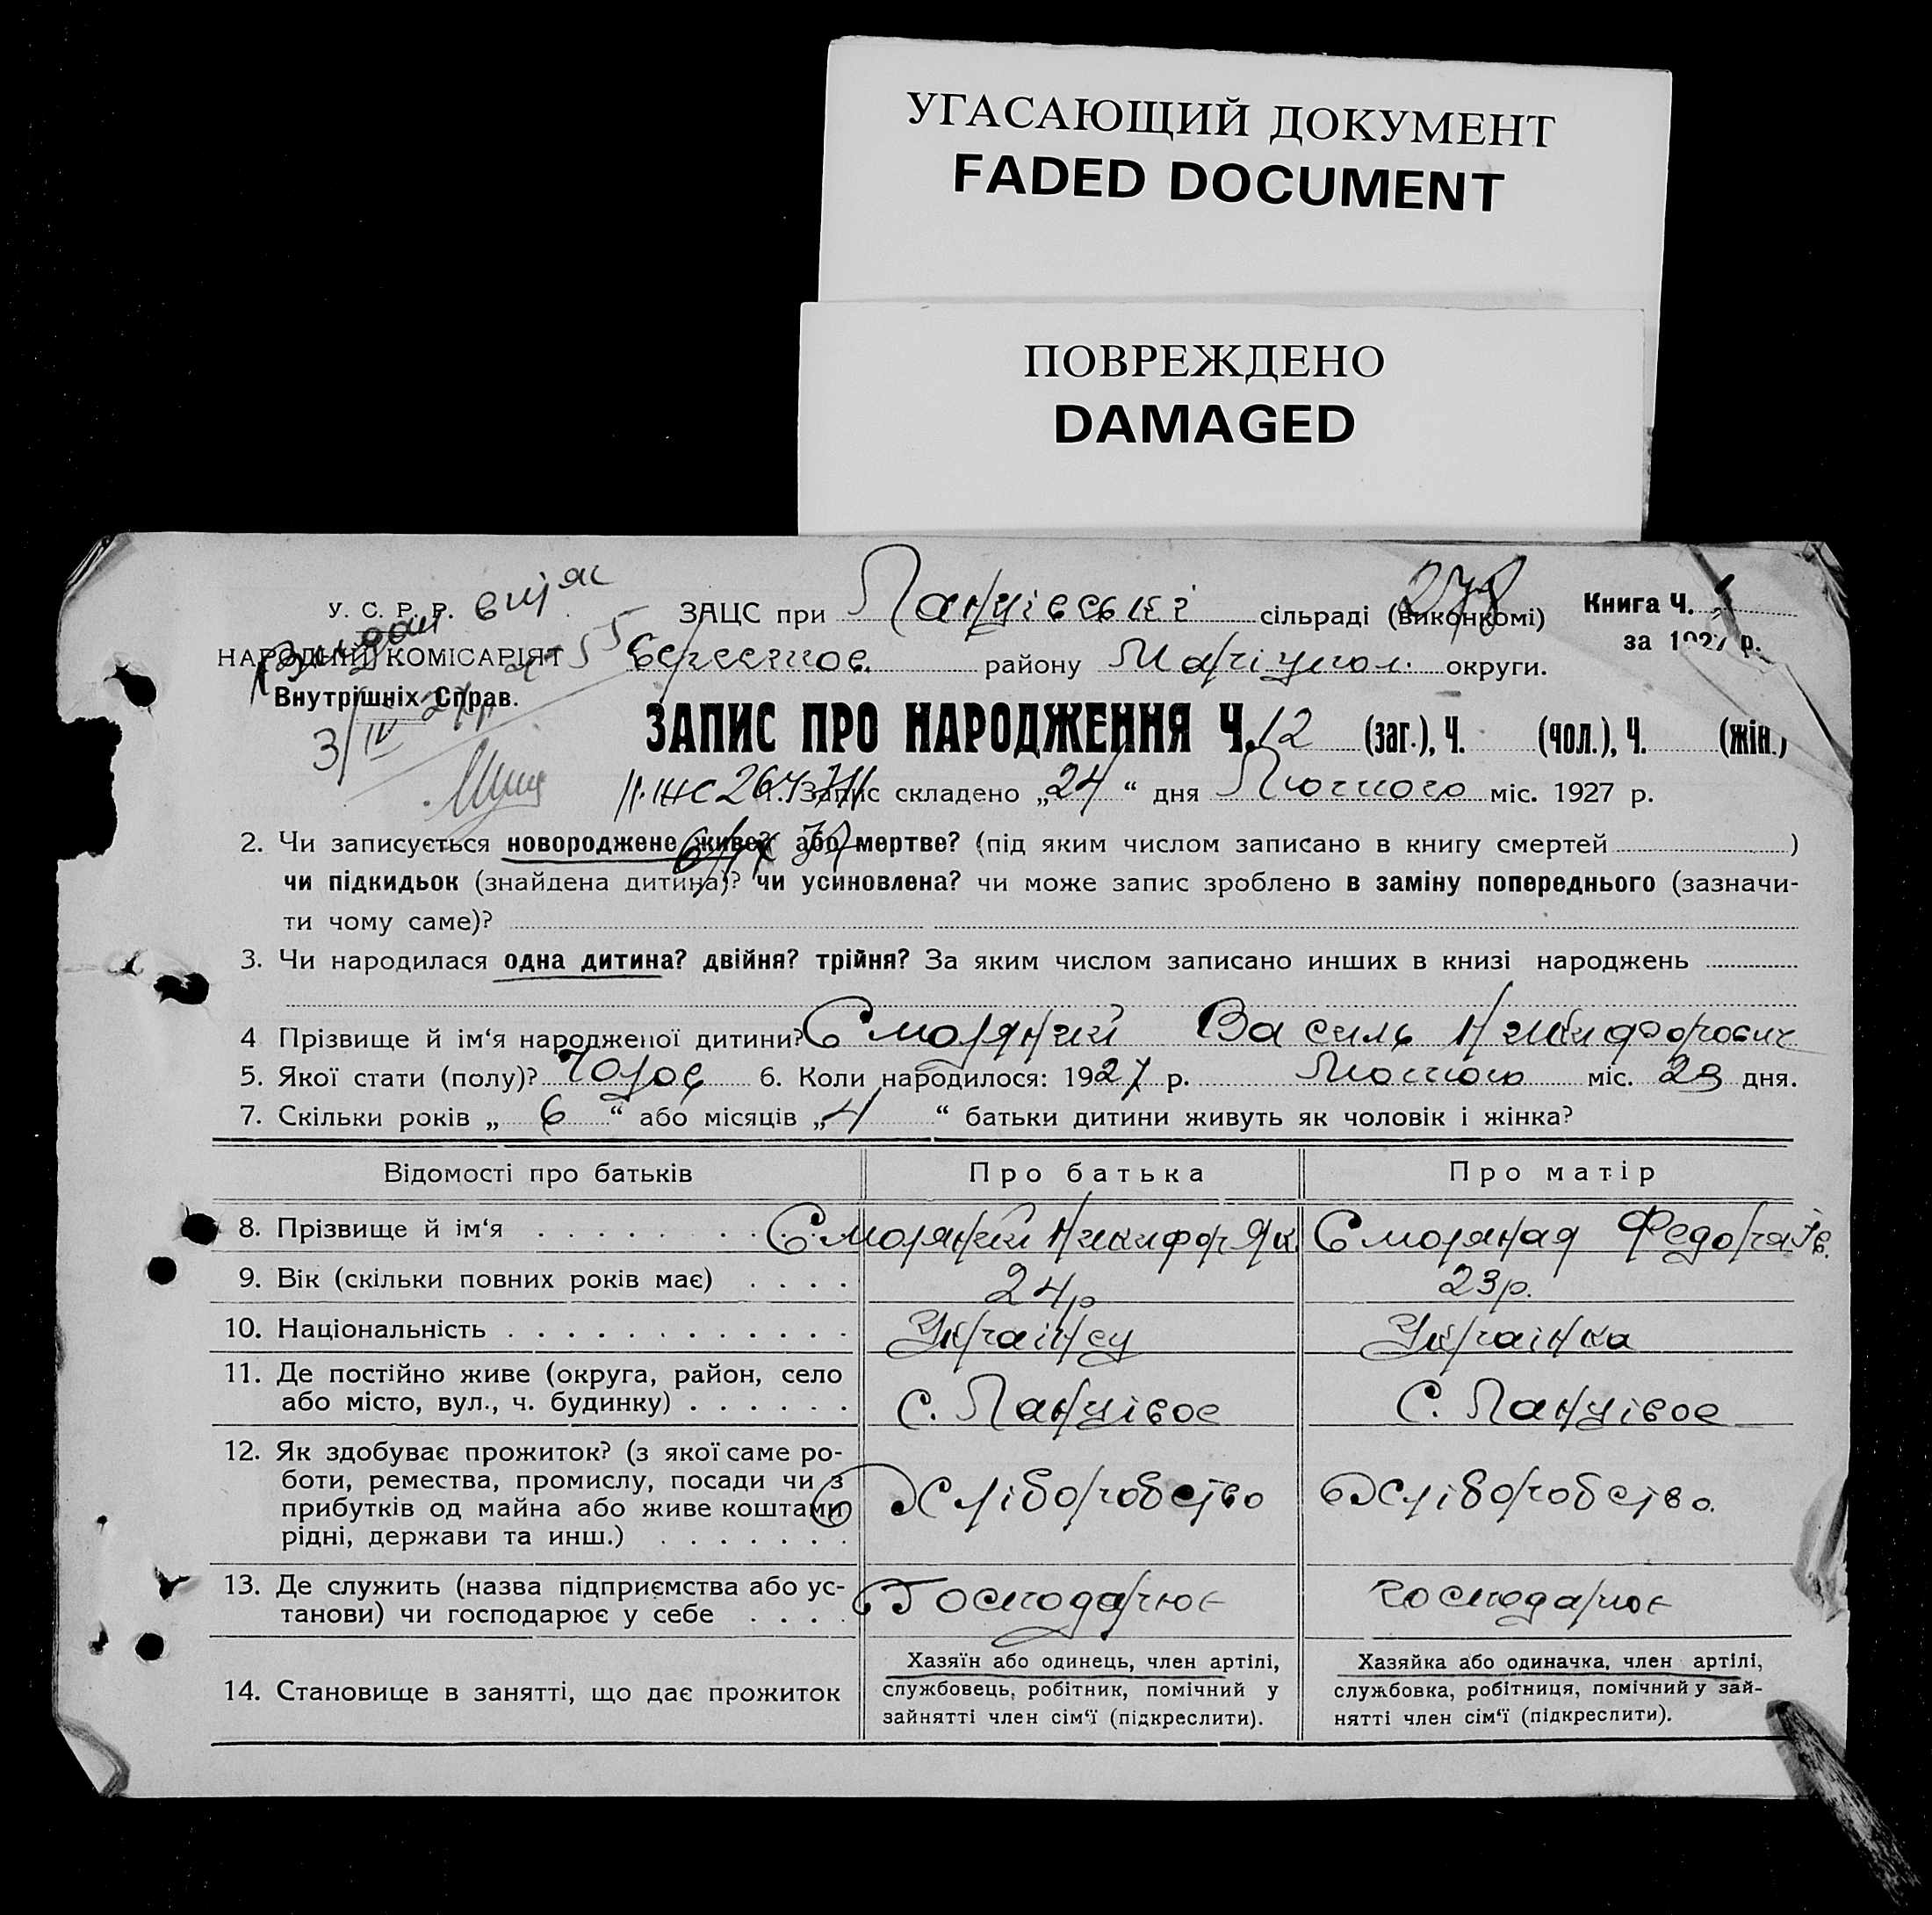 УГАСАЮЩИЙ ДОКУМЕНТ
FADED DOCUMENT
ПОВРЕЖДЕНО
DAMAGED
У. С. Р. Р.
НАРОДНИЙ КОМІСАРІЯТ
Внутрішніх Справ.
ЗАЦС при Ланцівській сільраді (виконкомі) 278 Книга Ч.
за 1927 р.
району Маріупол. округи.
ЗАПИС ПРО НАРОДЖЕННЯ Ч. 12 (заг.), Ч. (чол.), Ч. (жін.)
1. Запис складено „24“ дня Лютого міс. 1927 р.
2. Чи записується новороджене живе? або мертве? (під яким числом записано в книгу смертей )
чи підкидьок (знайдена дитина)? чи усиновлена? чи може запис зроблено в заміну попереднього (зазначи-
ти чому саме)?
3. Чи народилася одна дитина? двійня? трійня? За яким числом записано инших в книзі народжень
4 Прізвище й ім‘я народженої дитини? Смоляний Василь Никифорович
5. Якої стати (полу)? Чолов 6. Коли народилося: 1927 р. Лютого міс. 23 дня.
7. Скільки років „ 6 “ або місяців „ 4 “ батьки дитини живуть як чоловік і жінка?
Відомості про батьків Про батька Про матір
8. Прізвище й ім‘я Смоляний Никифор Як Смоляная Федора Ів.
9. Вік (скільки повних років має) 24р 23р.
10. Національність Українец Українка
11. Де постійно живе (округа, район, село
або місто, вул., ч. будинку) С. Ланцівое С. Ланцівое
12. Як здобуває прожиток? (з якої саме ро-
боти, ремества, промислу, посади чи з
прибутків од майна або живе коштами
рідні, держави та инш.) Хліборобство Хліборобство.
13. Де служить (назва підприємства або ус-
танови) чи господарює у себе Господарює господарює
14. Становище в занятті, що дає прожиток
Хазяїн або одинець, член артілі,
службовець, робітник, помічний у
зайнятті член сім‘ї (підкреслити).
Хазяйка або одиначка, член артілі,
службовка, робітниця, помічний у зай-
нятті член сім‘ї (підкреслити).